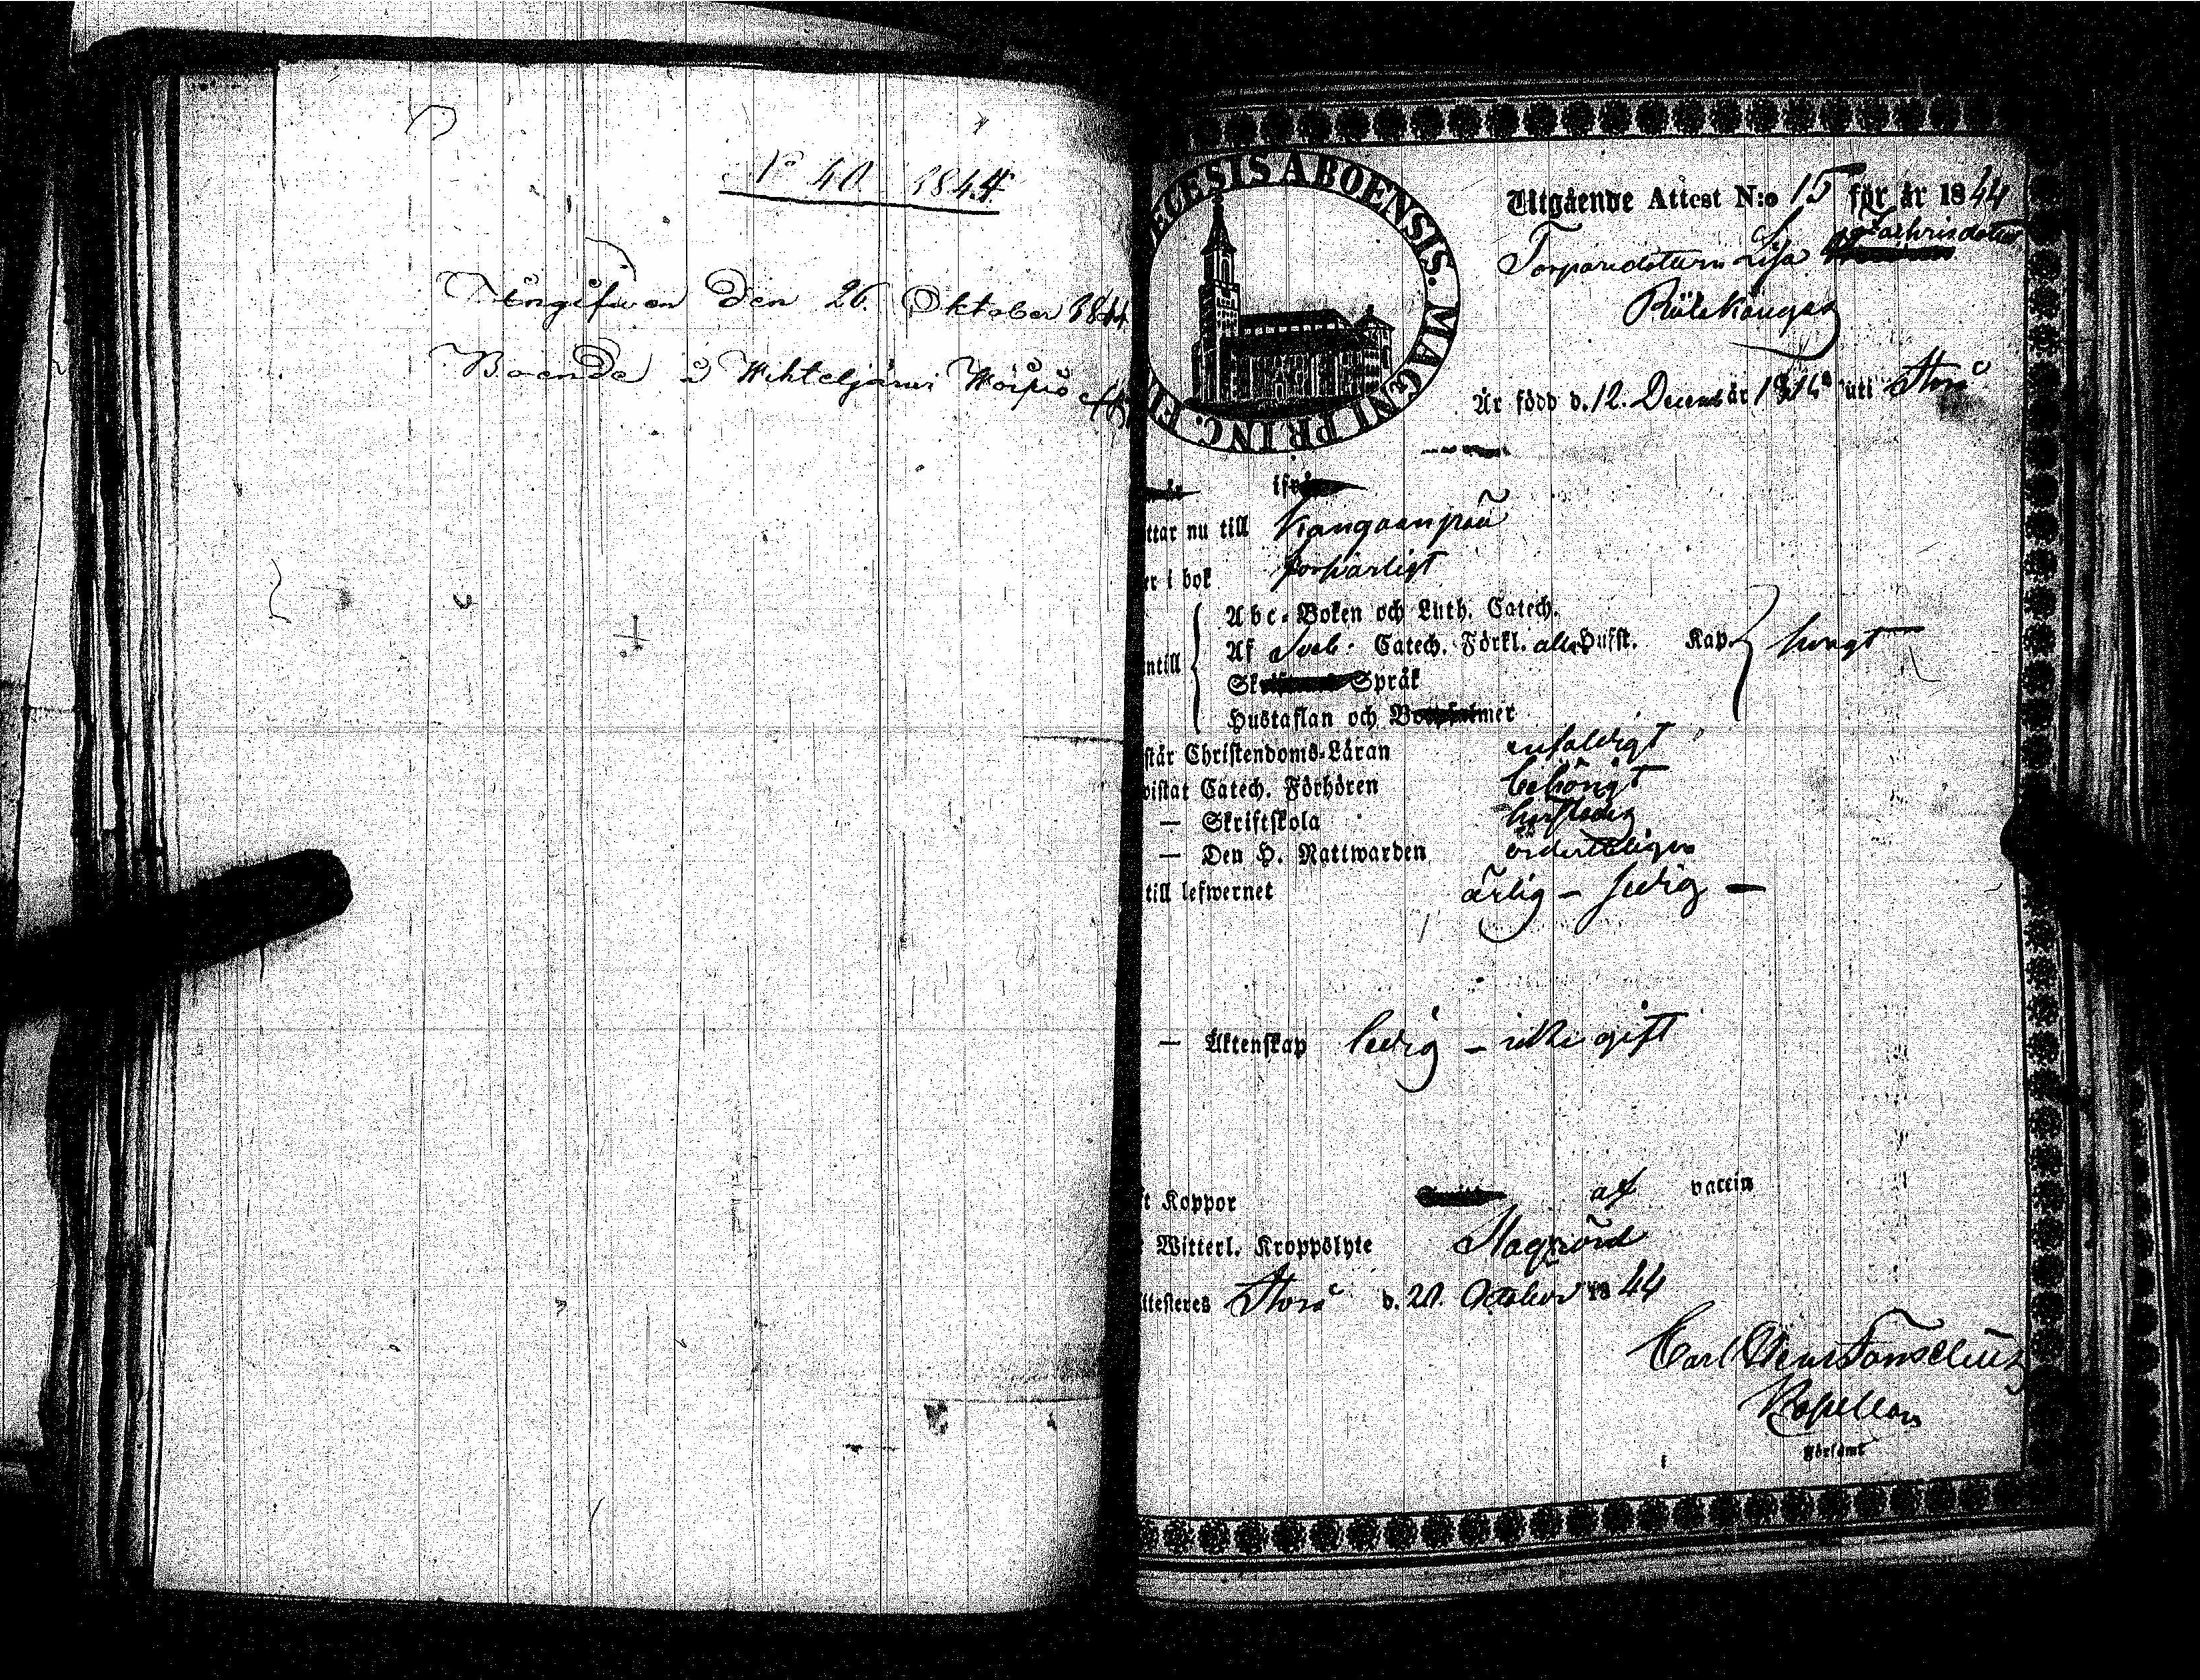 No 40 1844
Ingifwen den 26. Oktober 1844
Boende å Wihteljärwi
ECESIS ABOENSIS. MAGNI PRINC. FI
Utgående Attest N:o 15 för år 1844
Torparedottern Lisa Zachrisdotter
Är född d. 12. Decemb år 1816 uti Storå
ifrån
ttar nu till Kangaanpää
er i bok försvarligt
Abc-Boken och Luth. Catech.
ntill Af Sveb. Catech. Förkl. alla Hufst. Kap. svagt
Språk
Hustaflan och
står Christendoms-Läran enfaldigt
vistat Catech. Förhören behörigt
— Skriftskola härstädes
— Den H. Nattwarden ordenteligen
till lefwernet ärlig – sedig –
— Äktenskap ledig – icke gift
t Koppor af vaccin
Witterl. Kroppslyte
ttesteres Storå d. 21. October 1844
Carl Fonselius
Kapellan
Församl